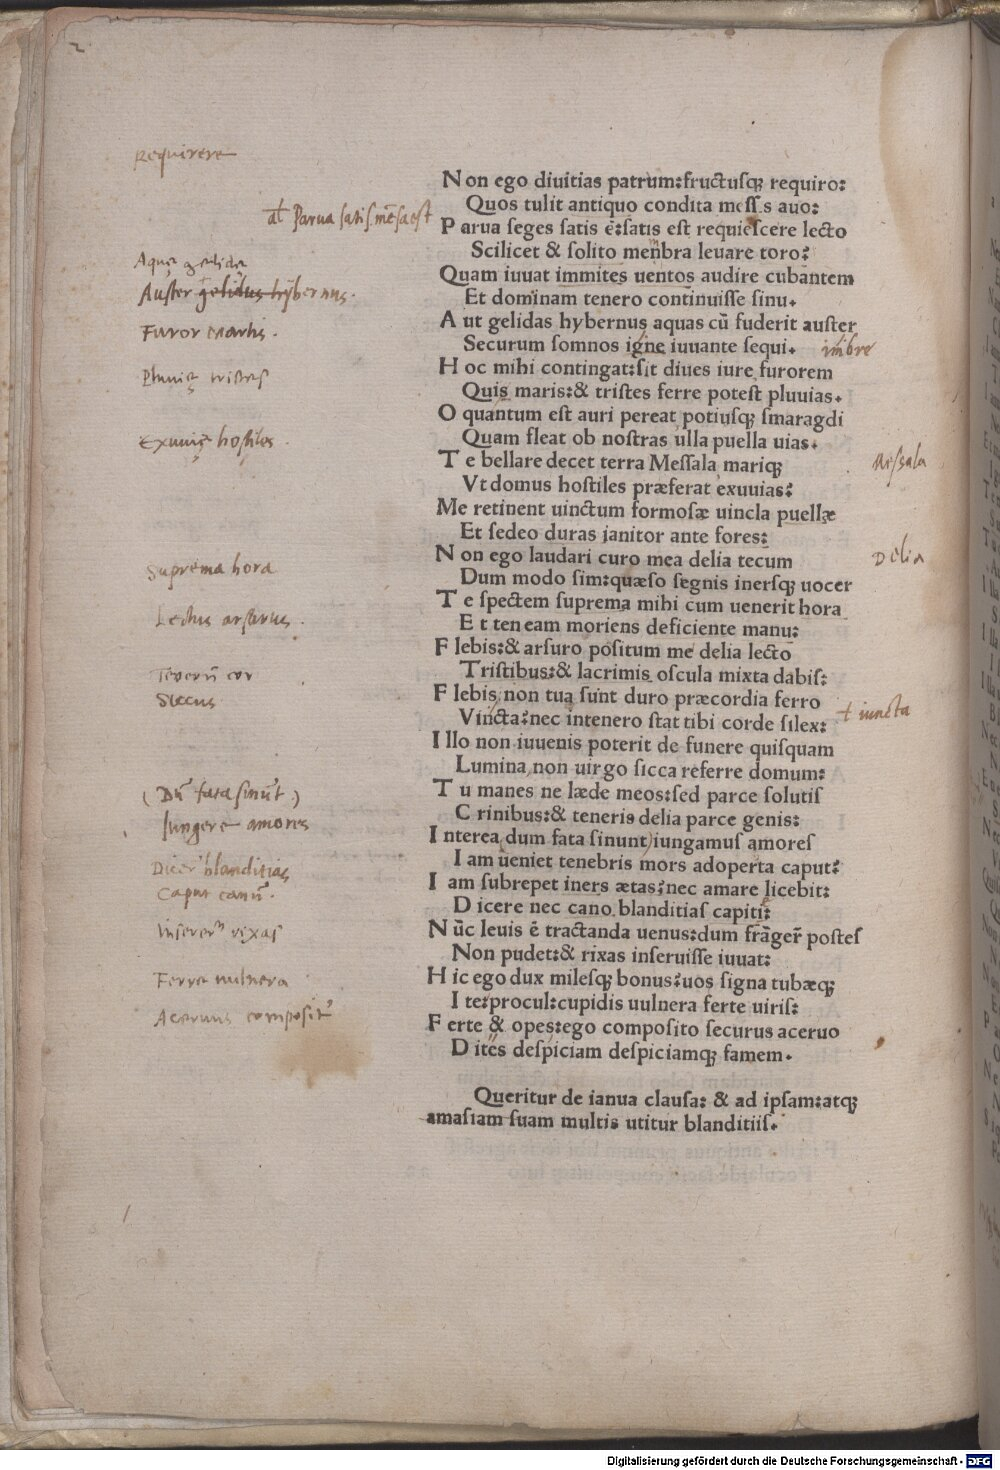 2
Requirere
Non ego diuitias patrum:fructusqꝫ requiro:
Quos tulit antiquo condita messis auo:
al' Parua satis mẽsa est
Parua seges satis ē:satis est requiescere lecto
Scilicet & solito menbra leuare toro:
m
Aquę gelidę
Quam iuuat immites uentos audire cubantem
Auster gelidus hybernus.
Et dominam tenero continuisse sinu.
Furor Maris.
Aut gelidas hybernus aquas cū fuderit auster
Securum somnos igne iuuante sequi. imbre
Pluuię tristes
Hoc mihi contingat:sit diues iure furorem
Quis maris:& tristes ferre potest pluuias.
O quantum est auri pereat potiusqꝫ smaragdi
Exuuię hostiles.
Quam fleat ob nostras ulla puella uias.
Te bellare decet terra Messala mariqꝫ
Messala
Vt domus hostiles præferat exuuias:
Me retinent uinctum formosæ uincla puellæ
Et sedeo duras janitor ante fores:
Non ego laudari curo mea delia tecum
Delia
Suprema hora
Dum modo sim:quæso segnis inersqꝫ uocer
Te spectem suprema mihi cum uenerit hora
Lectus arsurus.
Et teneam moriens deficiente manu:
Flebis:& arsuro positum me delia lecto
Tenerũ cor
Tristibus:& lacrimis oscula mixta dabis:
Siccus
Flebis non tua sunt duro præcordia ferro
Vincta:nec intenero stat tibi corde silex:
+ iuncta
Illo non iuuenis poterit de funere quisquam
Lumina non uirgo sicca referre domum:
(Dũ fata sinũt)
Tu manes ne læde meos:sed parce solutis
Iungere amores
Crinibus:& teneris delia parce genis:
Interea dum fata sinunt iungamus amores
Dicere blanditias
Iam ueniet tenebris mors adoperta caput:
Caput canũ.
Iam subrepet iners ætas:nec amare licebit:
Dicere nec cano blanditias capiti:
Inserere rixas
Nūc leuis ē tractanda uenus:dum frāger postes
Non pudet:& rixas inseruisse iuuat:
Ferre uulnera
Hic ego dux milesqꝫ bonus:uos signa tubæqꝫ
Ite:procul:cupidis uulnera ferte uiris:
Aceruus composit'
Ferte & opes:ego composito securus aceruo
Dites despiciam despiciamqꝫ famem.
Queritur de ianua clausa: & ad ipsam:atqꝫ
amasiam suam multis utitur blanditiis.
Digitalisierung gefördert durch die Deutsche Forschungsgemeinschaft - DFG